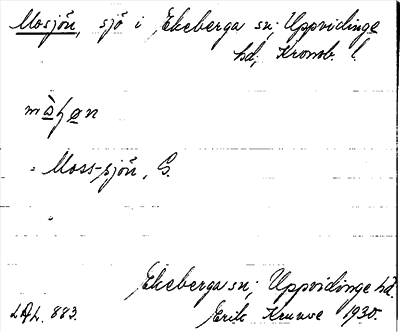 Mosjön, sjö i Ekeberga sn; Uppvidinge
hd; Kronob. l.
mòʒøn
Moss-sjön, G.
Ekeberga sn; Uppvidinge hd.
LAL. 883. Erik Kruuse 1930.